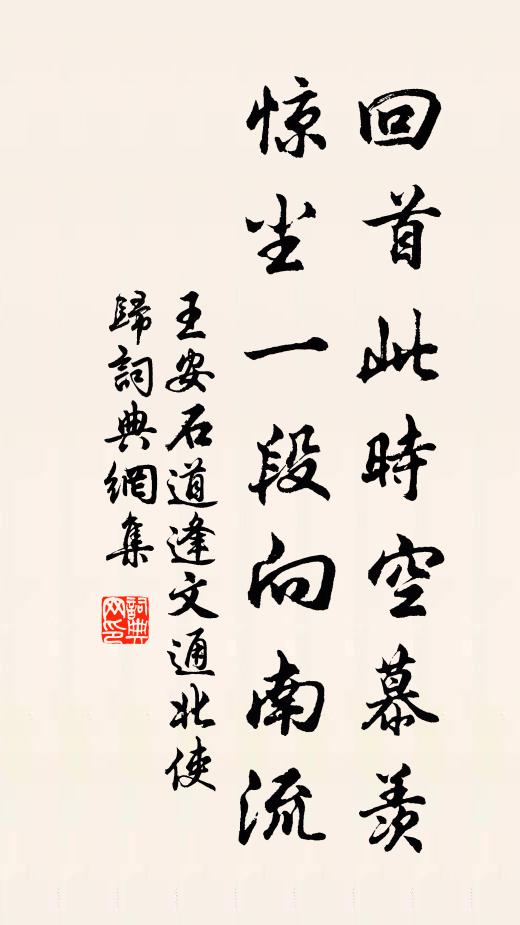 回首此時空慕羨
惊尘一段向南流
王安石道逢文通北使
歸詞典網集
詞典
网印